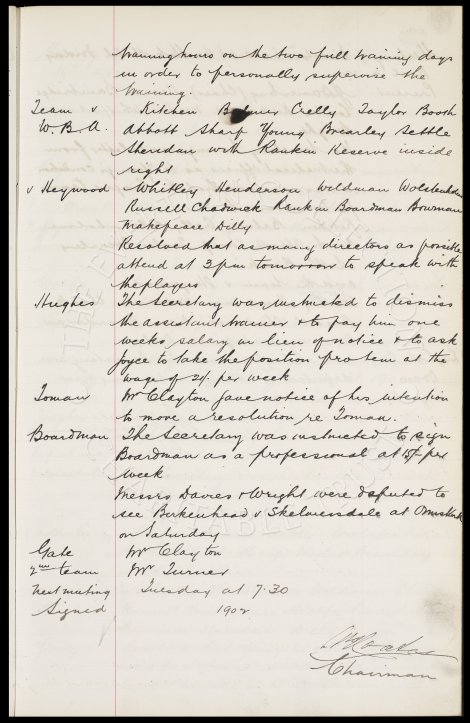 training hours on the two full training days
in order to personally supervise the
training.
Team v Kitchen Balmer Crelly Taylor Booth
W.B.A. Abbott Sharp Young Brearley Settle
Sheridan with Rankin Reserve inside
right
v Heywood Whitley Henderson Wildman Wolstenholme
Russell Chadwick Rankin Boardman Bowman
Makepeace Dilly
Resolved that as many directors as possible
attend at 2pm tomorrow to speak with
the players
Hughes The Secretary was instructed to dismiss
the assistant trainer & to pay him one
weeks salary in lieu of notice & to ask
Joyce to take the position pro tem at the
wage of 24/. per week
Toman Mr Clayton gave notice of his intention
to move a resolution re Toman.
Boardman The Secretary was instructed to sign
Boardman as a professional at 15/- per
week
Messrs Davies & Wright were deputed to
see Birkenhead v Skelmersdale at Ormskirk
on Saturday
Gate Mr Clayton
2nd team Mr Turner
Next meeting Tuesday at 7.30
Signed 1902
Chairman